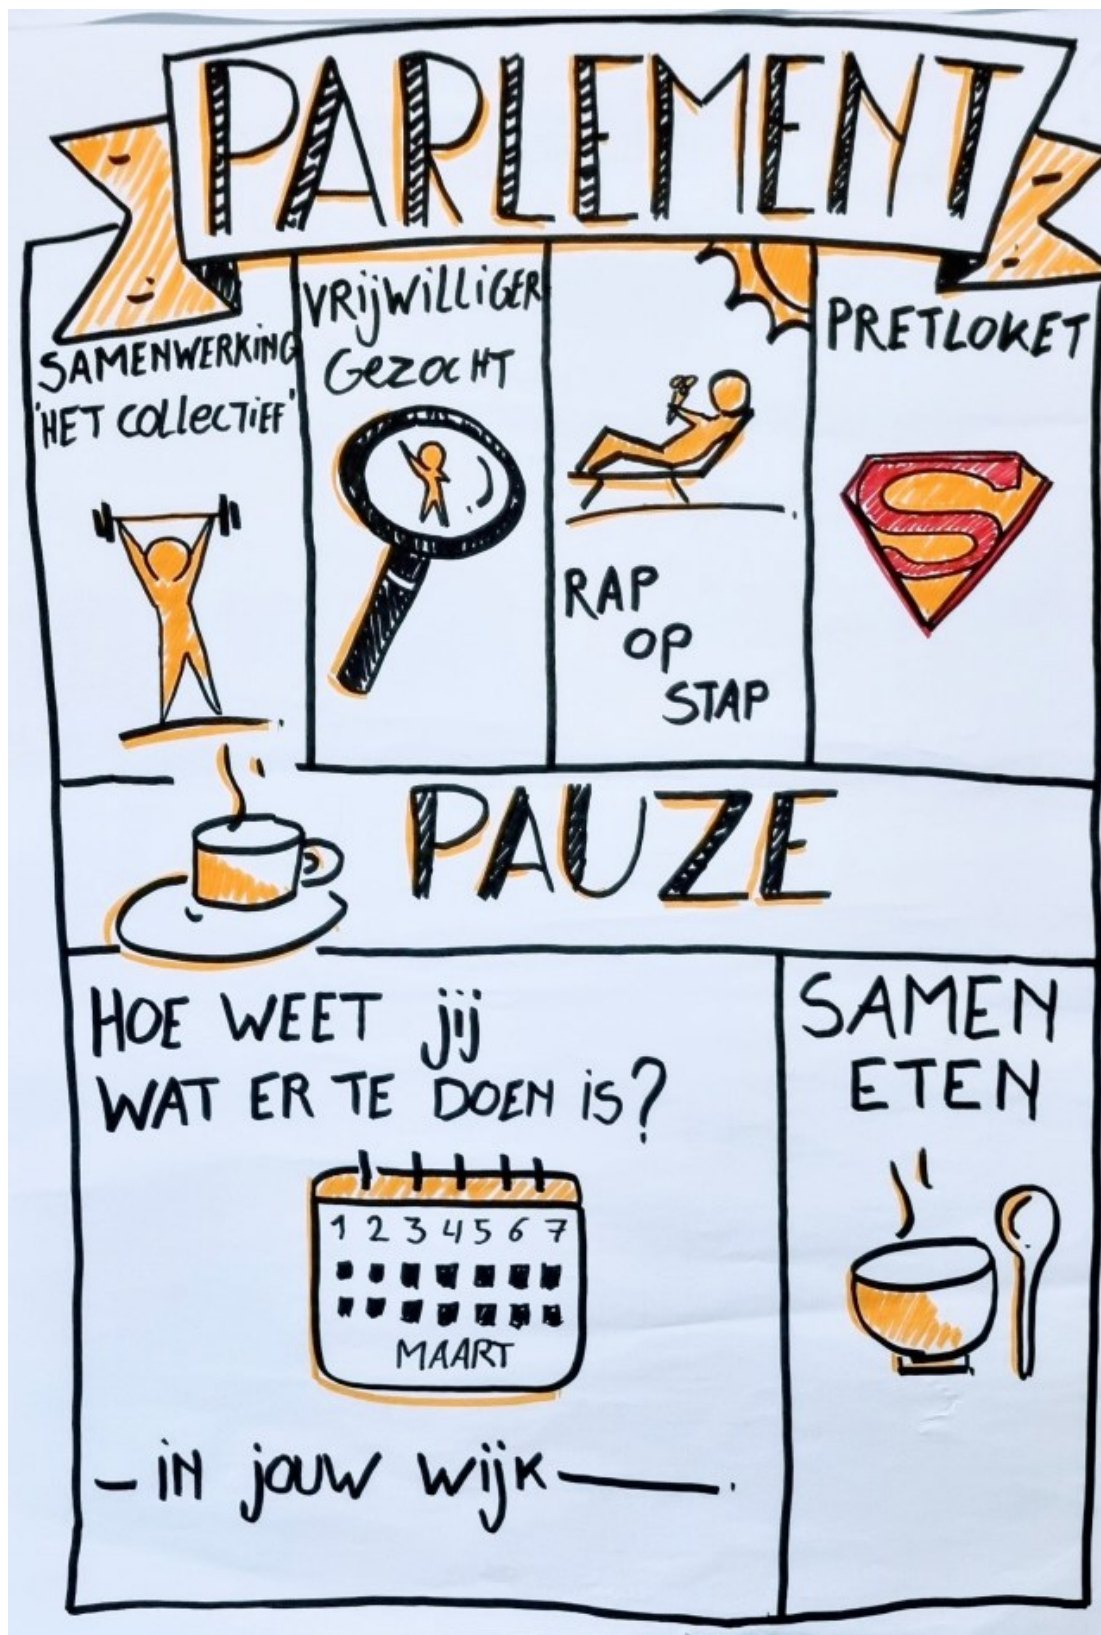 PARLEMENT
SAMENWERKING
'HET COLLECTIEF'
VRIJWILLIGER
GEZOCHT
RAP
OP
STAP
PRETLOKET
S
PAUZE
HOE WEET jij
WAT ER TE DOEN iS?
1 2 3 4 5 6 7
MAART
- iN jouw wijk -
SAMEN
ETEN